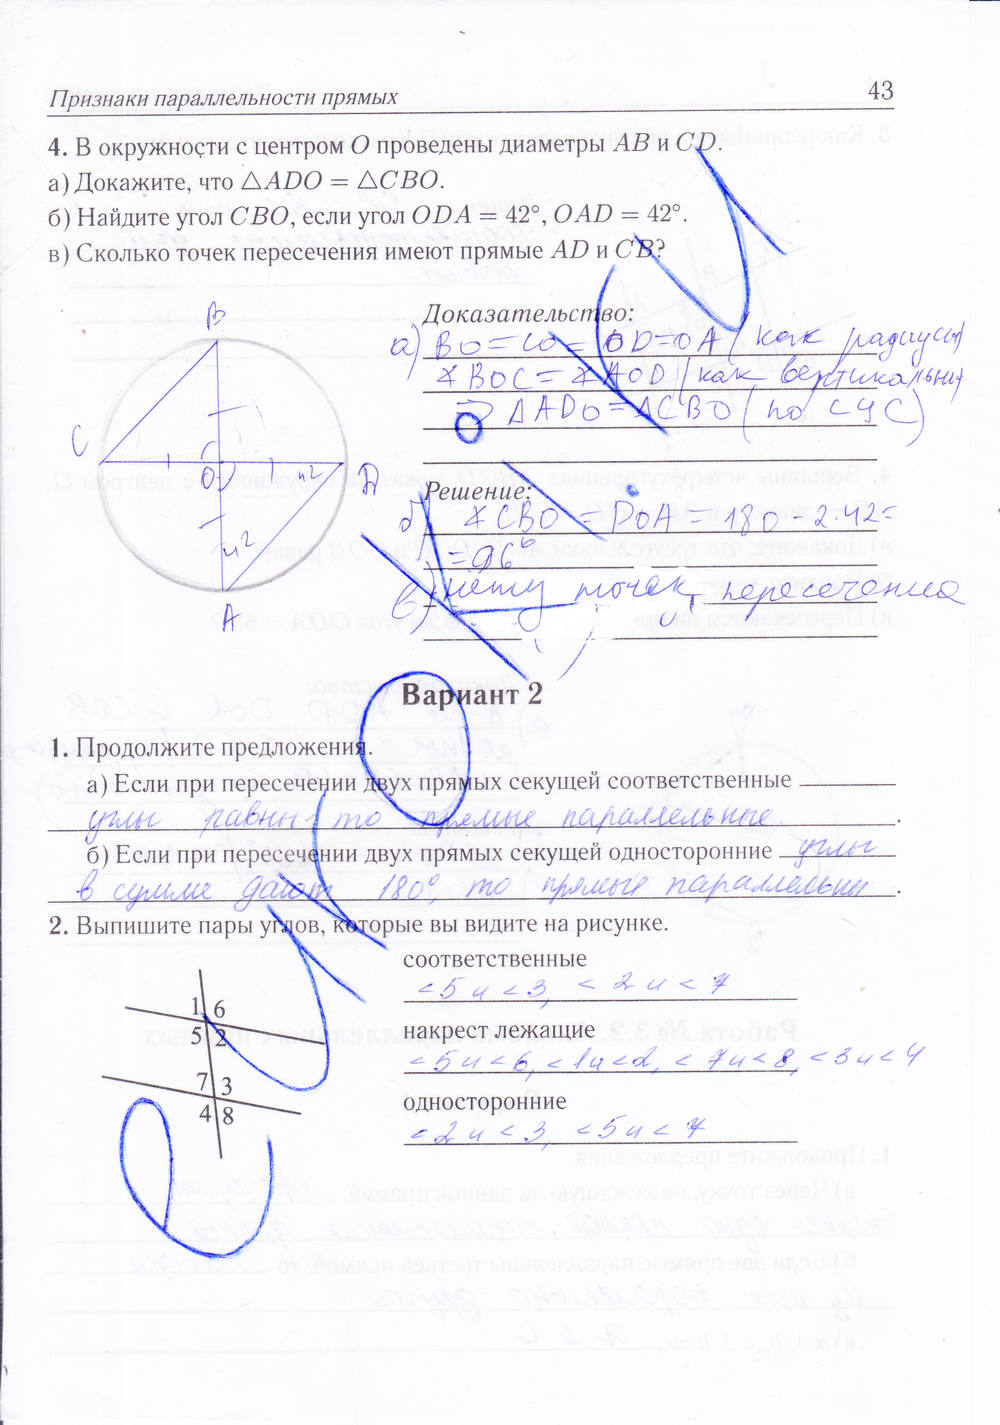 Признаки параллельности прямых 43
4. В окружности с центром O проведены диаметры AB и CD.
а) Докажите, что △ADO = △CBO.
б) Найдите угол CBO, если угол ODA = 42°, OAD = 42°.
в) Сколько точек пересечения имеют прямые AD и CB?
B
C
O
D
A
42
42
Доказательство:
а) BO = CO = OD = OA (как радиусы)
∢BOC = ∢AOD (как вертикальны)
⇒ △ADO = △CBO (по СУС)
Решение:
б) ∢CBO = DOA = 180 - 2·42 =
= 96°
в) нету точек пересечения
Вариант 2
1. Продолжите предложения.
а) Если при пересечении двух прямых секущей соответственные
углы равны то прямые параллельные.
б) Если при пересечении двух прямых секущей односторонние углы
в сумме дают 180°, то прямые параллельны.
2. Выпишите пары углов, которые вы видите на рисунке.
1 6
5 2
7 3
4 8
соответственные
<5 и <3, <2 и <7
накрест лежащие
<5 и <6, <1 и <2, <7 и <8, <3 и <4
односторонние
<2 и <3, <5 и <7